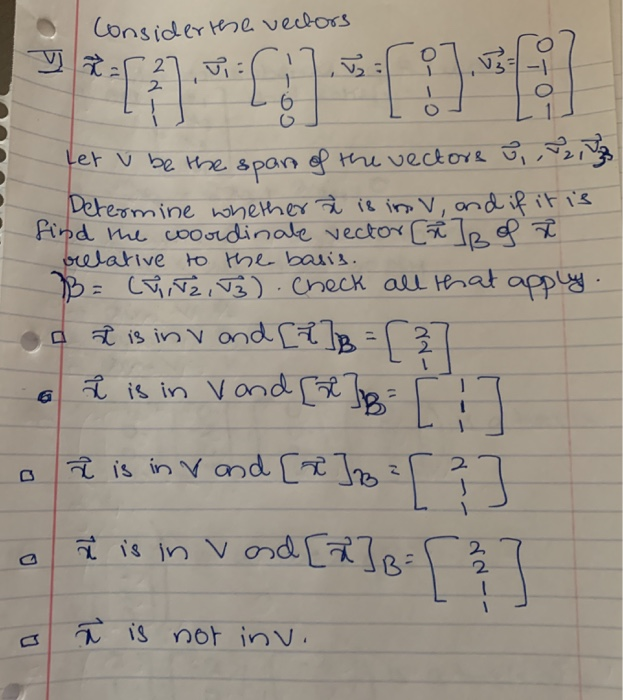 Consider the vectors
VI x⃗ = [2 2 1 1], v⃗1 = [1 1 0 0], v⃗2 = [0 1 1 0], v⃗3 = [0 -1 0 1]
Let V be the span of the vectors v⃗1, v⃗2, v⃗3
Determine whether x⃗ is in V, and if it is
find the coordinate vector [x⃗]B of x⃗
relative to the basis.
B = (v⃗1, v⃗2, v⃗3). Check all that apply.
□ x⃗ is in V and [x⃗]B = [2 2 1]
□ x⃗ is in V and [x⃗]B = [1 1 1]
□ x⃗ is in V and [x⃗]B = [2 1 1]
□ x⃗ is in V and [x⃗]B = [2 2 1 1]
□ x⃗ is not in V.